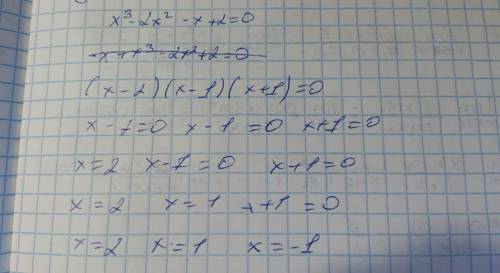 x³-2x²-x+2=0
x+x³-2x²+2=0
(x-2)(x-1)(x+1)=0
x-1=0 x-1=0 x+1=0
x=2 x-1=0 x+1=0
x=2 x=1 x+1=0
x=2 x=1 x=-1